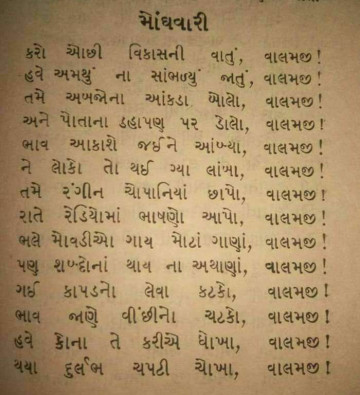 મોંઘવારી
કરો ઓછી વિકાસની વાતું, વાલમજી!
હવે અમથું ના સાંભળ્યું જાતું, વાલમજી!
તમે અબજોના આંકડા બોલો, વાલમજી!
અને પોતાના ડહાપણ પર ડોલો, વાલમજી!
ભાવ આકાશે જઈને આંબ્યા, વાલમજી!
ને લોકો તો થઈ ગ્યા લાંબા, વાલમજી!
તમે રંગીન ચોપાનિયાં છાપો, વાલમજી!
રાતે રેડિયોમાં ભાષણો આપો, વાલમજી!
ભલે માવડીઓ ગાય મોટાં ગાણાં, વાલમજી!
પણ શબ્દોનાં થાય ના અથાણાં, વાલમજી!
ગઈ કાપડનો લેવા કટકો, વાલમજી!
ભાવ જાણે વીંછીનો ચટકો, વાલમજી!
હવે કોના તે કરીએ ધોખા, વાલમજી!
થયા દુર્લભ ચપટી ચોખા, વાલમજી!